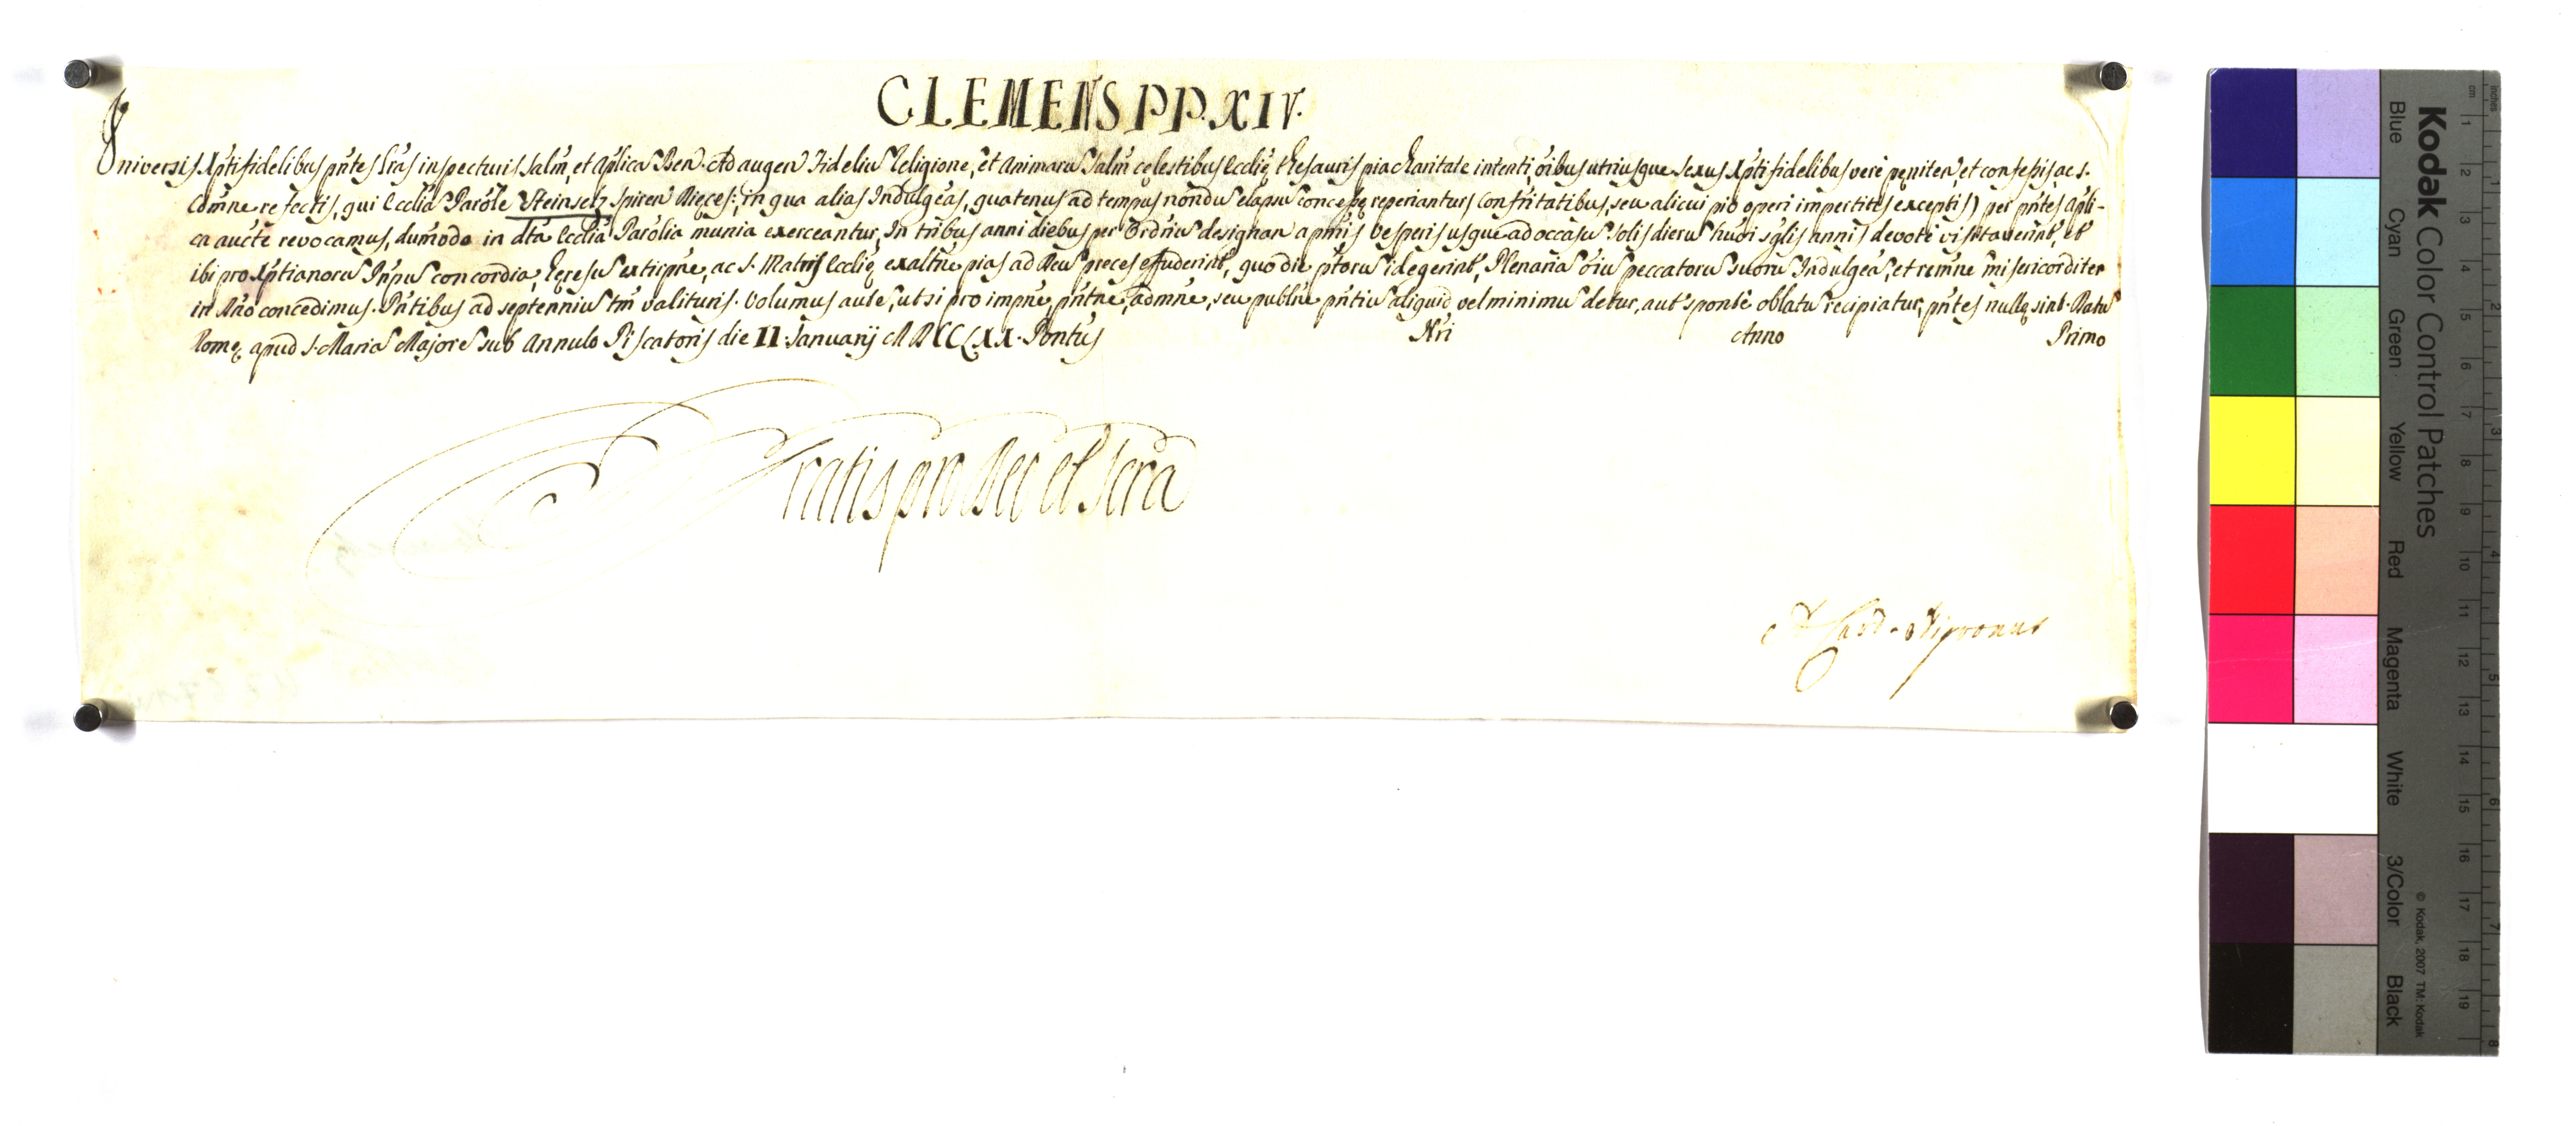 CLEMENS PP. XIV.
Universis Xpti fidelibus pntes Lras inspecturis Salm, et Aplica Ben. Ad augen Fideliu Religione, et Animaru Salm celestibus Ecclie Thesauris pia Charitate intenti, oibus utriusque Sexus Xpti fidelibus vere peniten, et confessis, ac S.
Comne refectis, qui Ecclia Parole Steinselz Spiren Dieces:, in qua alias Indulgeas, quatenus ad tempus nondu elapsu concesse reperiantur (Confritatibus, seu alicui pio operi impertitis exceptis) per pntes Apli-
ca aucte revocamus, dumodo in dta Ecclia Parolia munia exerceantur, In tribus anni diebus per Ordriu designan a primis Vesperis usque ad occasu Solis dieru hmoi sglis annis devote visitaverint, et
ibi pro Xptianoru Pnpu concordia, heresu extirpne, ac S. Matris Ecclie exaltne pias ad Deu preces effuderint, quo die ptoru id egerint, Plenaria oiu peccatoru suoru Indulgea, et remne misericorditer
in Dno concedimus. Pntibus ad septenniu tm valituris. Volumus aute, ut si pro impne, pntne, admne, seu publne pntiu aliquid vel minimu detur, aut sponte oblatu recipiatur, pntes nulle sint. Datu
Rome apud S. Maria Majore sub Annulo Piscatoris die II Januarij MDCCLXX. Pontus Nri Anno Primo
Gratis pro Deo et Scra
A Card. Nigronus
Kodak Color Control Patches
Blue Cyan Green Yellow Red Magenta White 3/Color Black
© Kodak, 2007 TM: Kodak
cm 1 2 3 4 5 6 7 8 9 10 11 12 13 14 15 16 17 18 19
inches 1 2 3 4 5 6 7 8